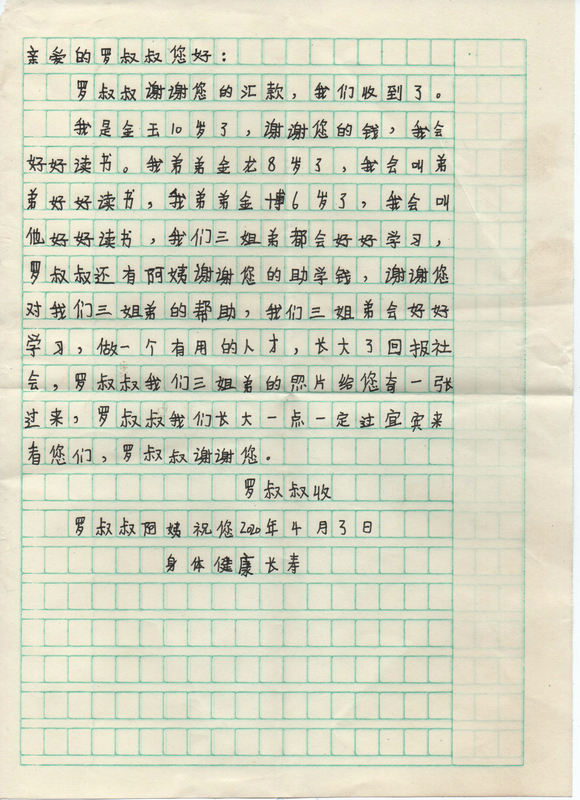 亲爱的罗叔叔您好：
罗叔叔谢谢您的汇款，我们收到了。
我是金玉10岁了，谢谢您的钱，我会
好好读书。我弟弟金龙8岁了，我会叫弟
弟好好读书，我弟弟金博6岁了，我会叫
他好好读书，我们三姐弟都会好好学习，
罗叔叔还有阿姨谢谢您的助学钱，谢谢您
对我们三姐弟的帮助，我们三姐弟会好好
学习，做一个有用的人才，长大了回报社
会，罗叔叔我们三姐弟的照片给您有一张
过来，罗叔叔我们长大一点一定过宜宾来
看您们，罗叔叔谢谢您。
罗叔叔收
罗叔叔阿姨祝您2020年4月3日
身体健康长寿